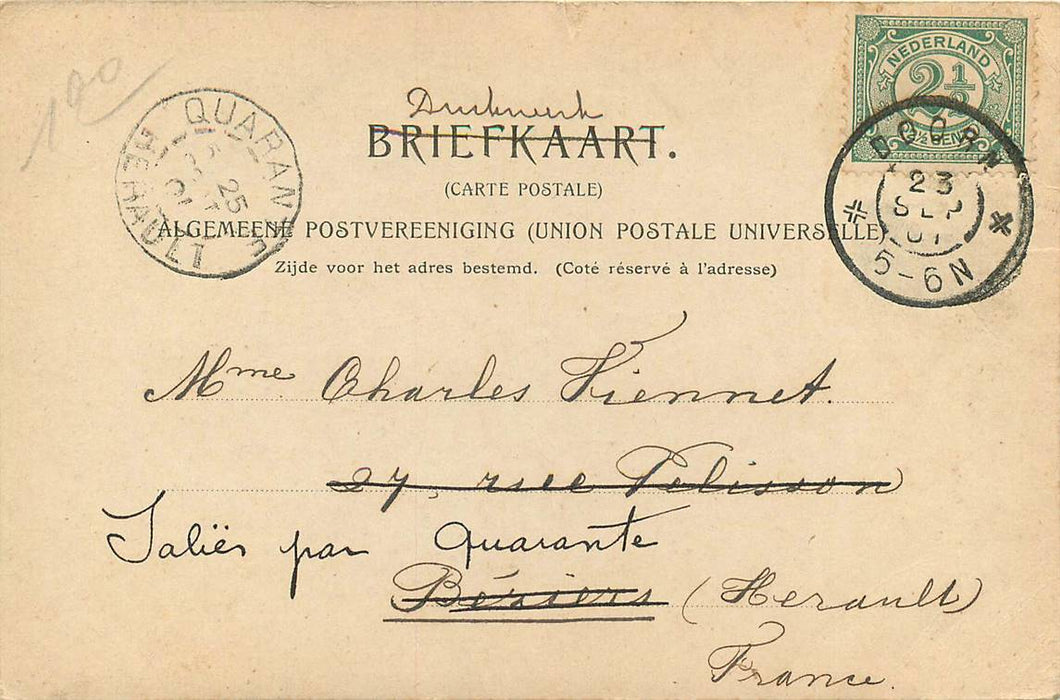 100
NEDERLAND
2½
CENT
DOORN
23
SEP
01
5-6N
QUARANTE
25
01
HERAULT
Drukwerk
BRIEFKAART.
(CARTE POSTALE)
ALGEMEENE POSTVEREENIGING (UNION POSTALE UNIVERSELLE)
Zijde voor het adres bestemd. (Coté réservé à l'adresse)
Mme Charles Viennet.
27, rue Pelisson
Saliès par Quarante
Béziers (Herault)
France